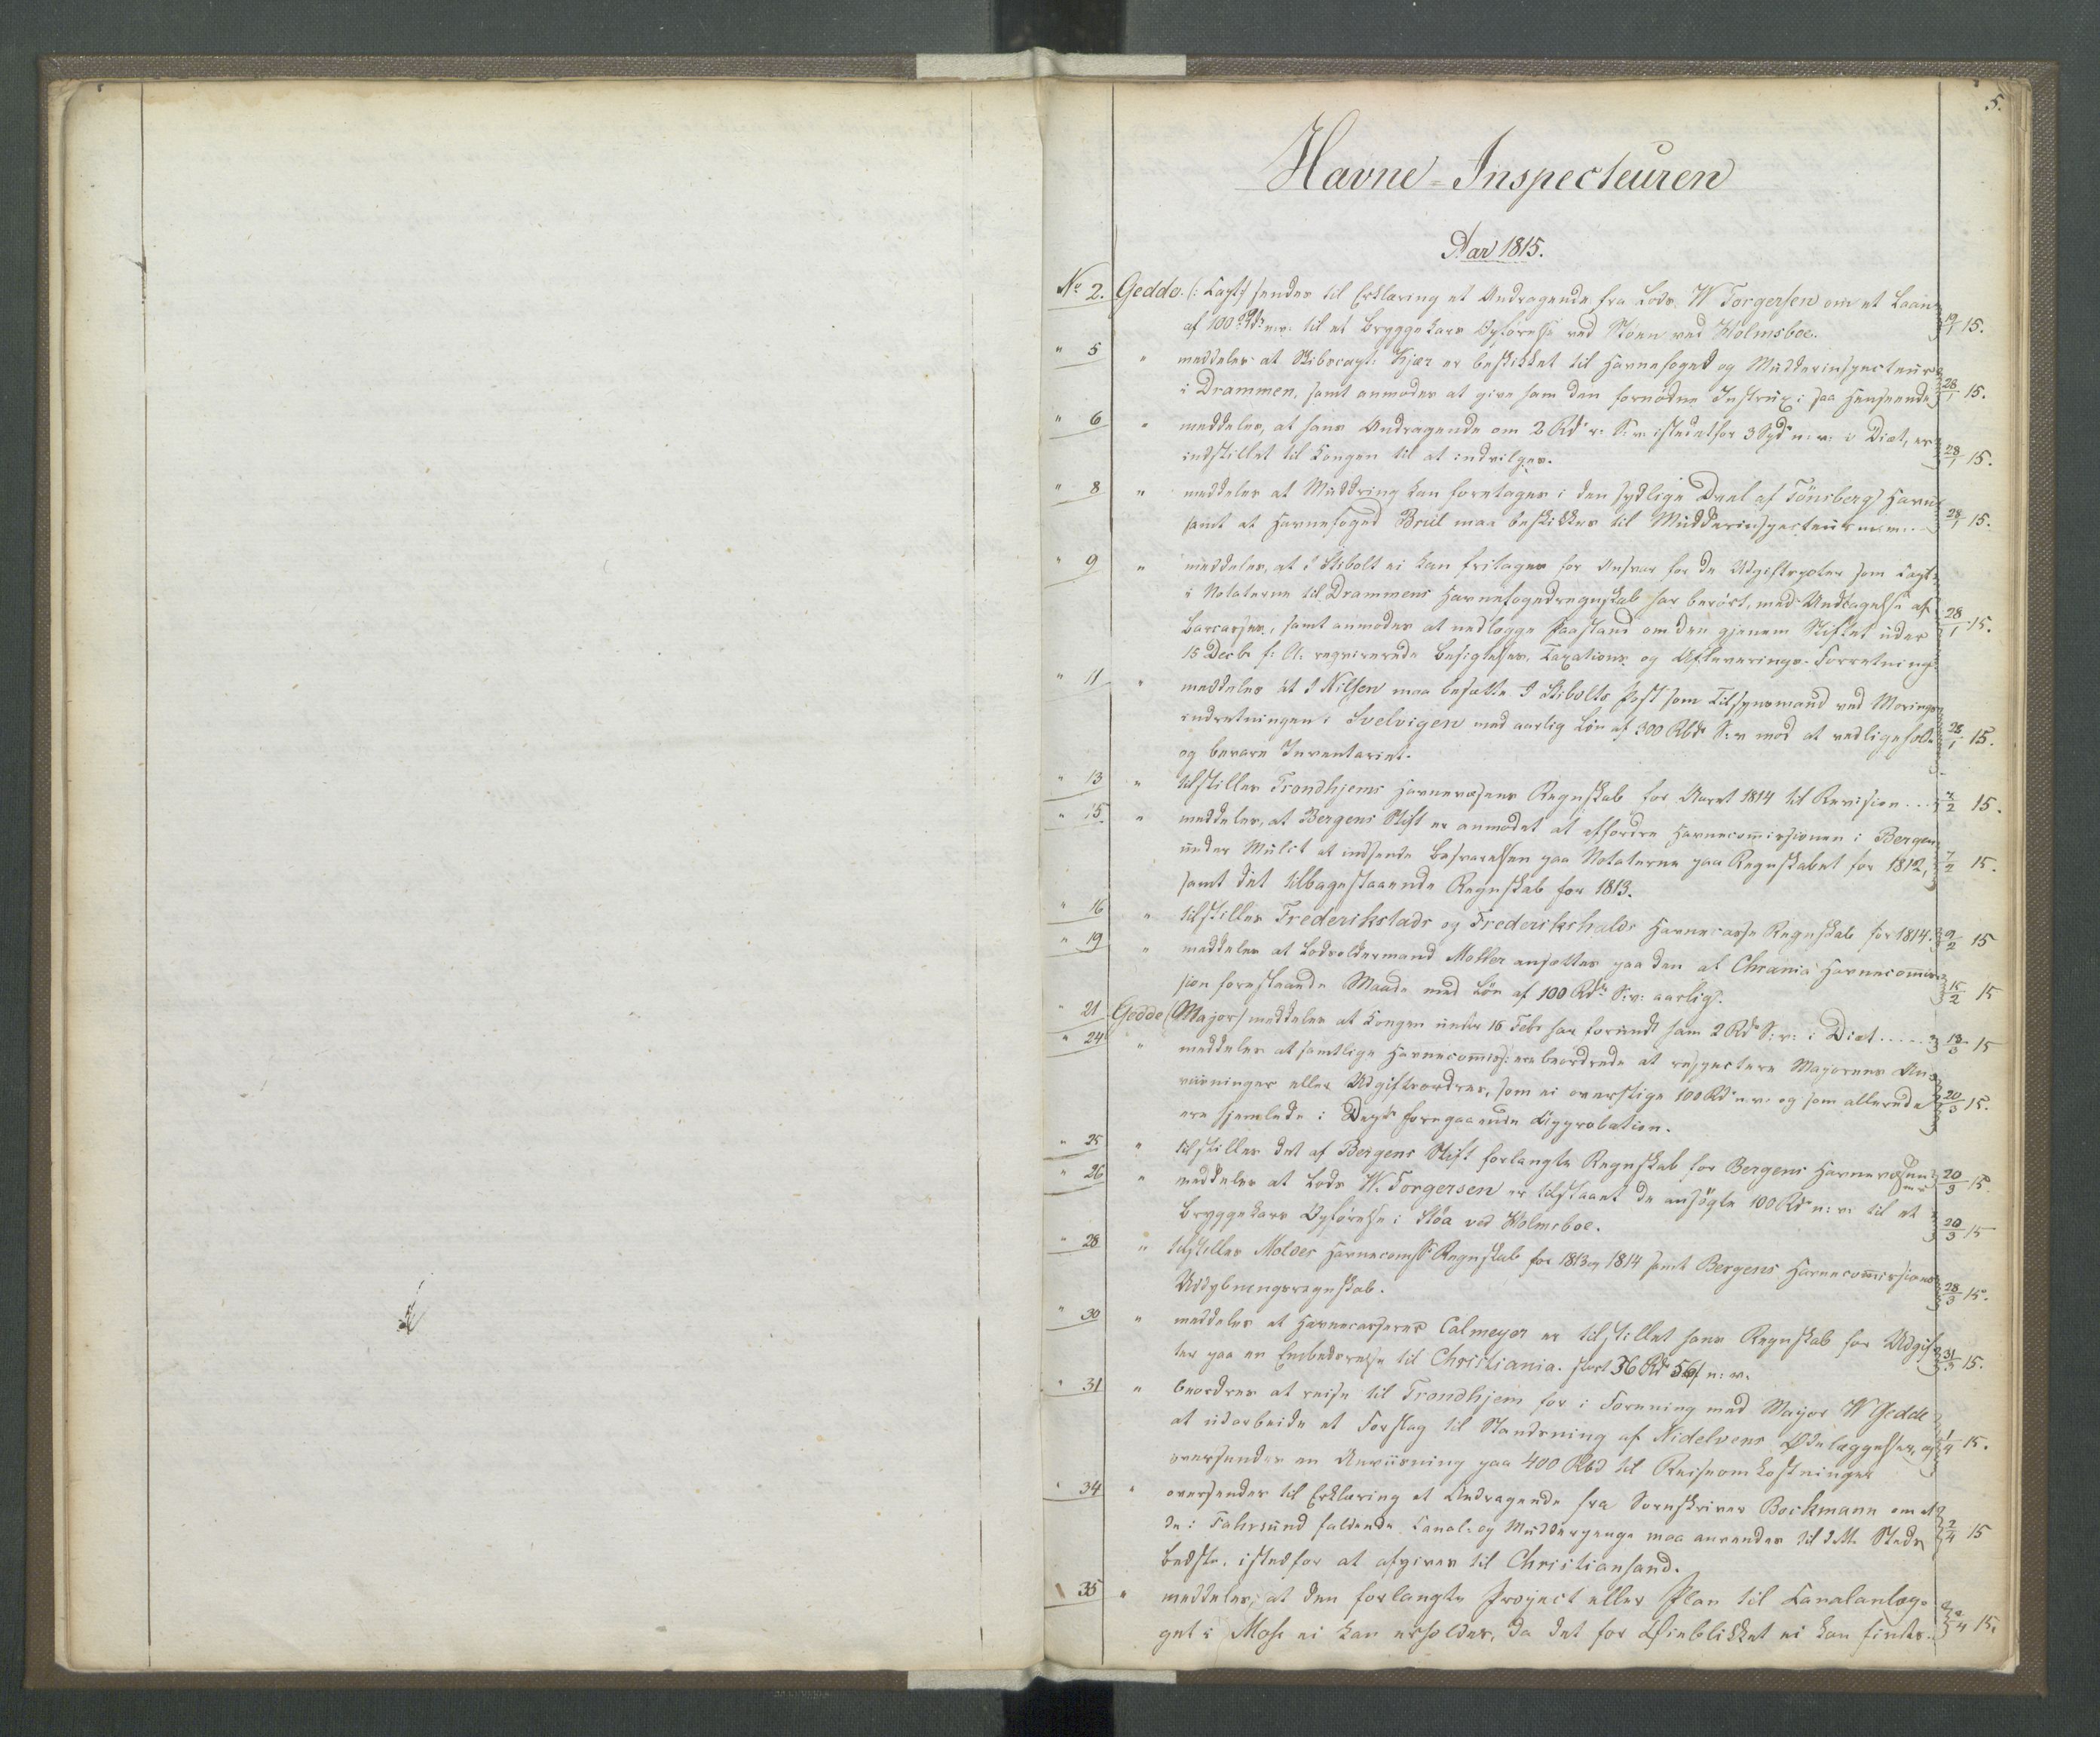 5.
Havne-Inspecteuren
Aar 1815.
No 2. Gedde (: Capt:) sendes til Erklæring et Andragende fra Lods W Torgersen om et Laan
af 100 Rd n.v. til et Bryggekars Opførelse ved Støen ved Holmsboe. 19/1 15.
" 5 " meddeles at Skibscapt: Kjær er beskikket til Havnefoged og Mudderinspecteur
i Drammen, samt anmodes at give ham den fornødne Instrux i saa Henseende 28/1 15.
" 6 " meddeles, at hans Andragende om 2 Rd r: S: v. istedetfor 3 Spd n: v: i Diæt, er
indstillet til Kongen til at indvilges. 28/1 15.
" 8 " meddeles at Muddring kan foretages i den sydlige Deel af Tönsbergs Havn
samt at Havnefoged Bruil maa beskikkes til Mudderinspecteur m.m. 28/1 15.
" 9 " meddeles, at J Stibolt ei kan fritages for Ansvar for de Udgiftsposter som Capt:
i Notaterne til Drammens Havnefogedregnskab har berört, med Undtagelse af
Barcasser, samt anmodes at nedlægge Paastand om den gjennem Stiftet under 28/1 15.
15 Decbr f: A. reqvirerede Besigtelses, Taxations og Afleverings-Forretning.
" 11 " meddeles at J Nilsen maa besætte J Stibolts Post som Tilsynsmand ved Morings
indretningen i Svelvigen med aarlig Løn af 300 Rbd S: v mod at vedligeholde 28/1 15.
og bevare Inventariet.
" 13 " tilstilles Trondhjems Havnevæsens Regnskab for Aaret 1814 til Revision... 7/2 15.
" 15. " meddeles, at Bergens Stift er anmodet at affordre Havnecommissionen i Bergen
under Mulct at indsende Besvarelsen paa Notaterne paa Regnskabet for 1812, 7/2 15.
samt det tilbagestaaende Regnskab for 1813.
" 16 " tilstilles Frederikstads og Frederikshalds Havnecasse Regnskab for 1814. 9/2 15
" 19 " meddeles at Lodsoldermand Møller ansættes paa den af Chrania Havnecommis-
sion foreslaaede Maade med Løn af 100 Rd S: v: aarlig. 15/2 15
" 21 Gedde (Major) meddeles at Kongen under 16 Febr har forundt ham 2 Rd S: v: i Diæt..... 13/3 15
" 24 " meddeles at samtlige Havnecommiss: ere beordrede at respectere Majorens An-
viisninger eller Udgiftsordrer, som ei overstige 100 Rd n.v. og som allerede 20/3 15.
ere hjemlede i Depts foregaaende Approbation.
" 25 " tilstilles det af Bergens Stift forlangte Regnskab for Bergens Havnevæsen 20/3 15
" 26 " meddeles at Lods W. Torgersen er tilstaaet de ansögte 100 Rd n: v: til et
Bryggekars Opførelse i Støa ved Holmsboe. 20/3 15
" 28 " tilstilles Moldes Havnecomss Regnskab for 1813 og 1814 samt Bergens Havnecommissions
Uddybningsregnskab. 28/3 15.
" 30 " meddeles at Havnecasserer Calmeyer er tilstillet hans Regnskab for Udgif-
ter paa en Embedsreise til Christiania. stort 36 Rd 56 s n: v. 31/3 15.
" 31 " beordres at reise til Trondhjem for i Forening med Major W Gedde
at udarbeide et Forslag til Standsning af Nidelvens Ødelæggelser, og 1/4 15.
oversendes en Anviisning paa 400 Rbd til Reiseomkostninger
" 34 " oversendes til Erklæring et Andragende fra Sorenskriver Bockmann om at
de i Fahrsund faldende Canal- og Mudderpenge maa anvendes til dette Steds 2/4 15
Bedste. istedfor at afgives til Christiansand.
" 35 " meddeles, at den forlangte Project eller Plan til Canalanlæg-
get i Moss ei kan erholdes, da det for Øieblikket ei kan findes. 4 15.